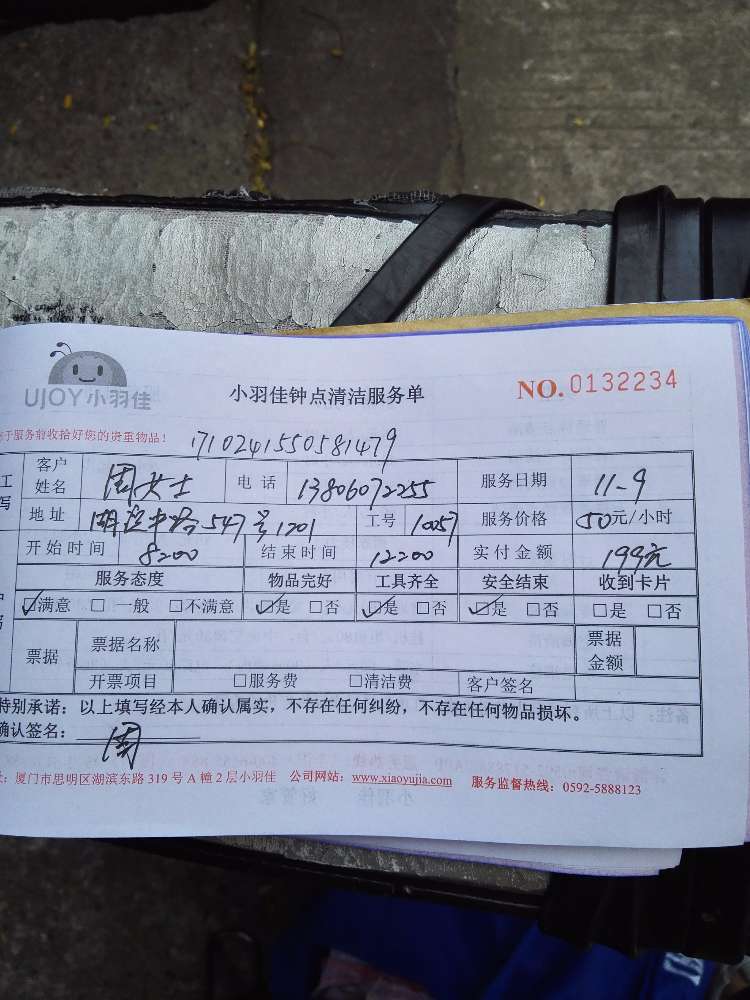 UJOY小羽佳
小羽佳钟点清洁服务单
NO. 0132234
于服务前收拾好您的贵重物品!
1710241550581479
工
写
客户姓名 周女士 电话 13806072255 服务日期 11-9
地址 547号1201 工号 10057 服务价格 50元/小时
开始时间 8:00 结束时间 12:00 实付金额 199元
服务态度 物品完好 工具齐全 安全结束 收到卡片
☑满意 □一般 □不满意 ☑是 □否 ☑是 □否 ☑是 □否 □是 □否
票据 票据名称 票据金额
开票项目 □服务费 □清洁费 客户签名
特别承诺：以上填写经本人确认属实，不存在任何纠纷，不存在任何物品损坏。
确认签名： 周
厦门市思明区湖滨东路 319 号 A 幢 2 层小羽佳 公司网站：www.xiaoyujia.com 服务监督热线：0592-5888123